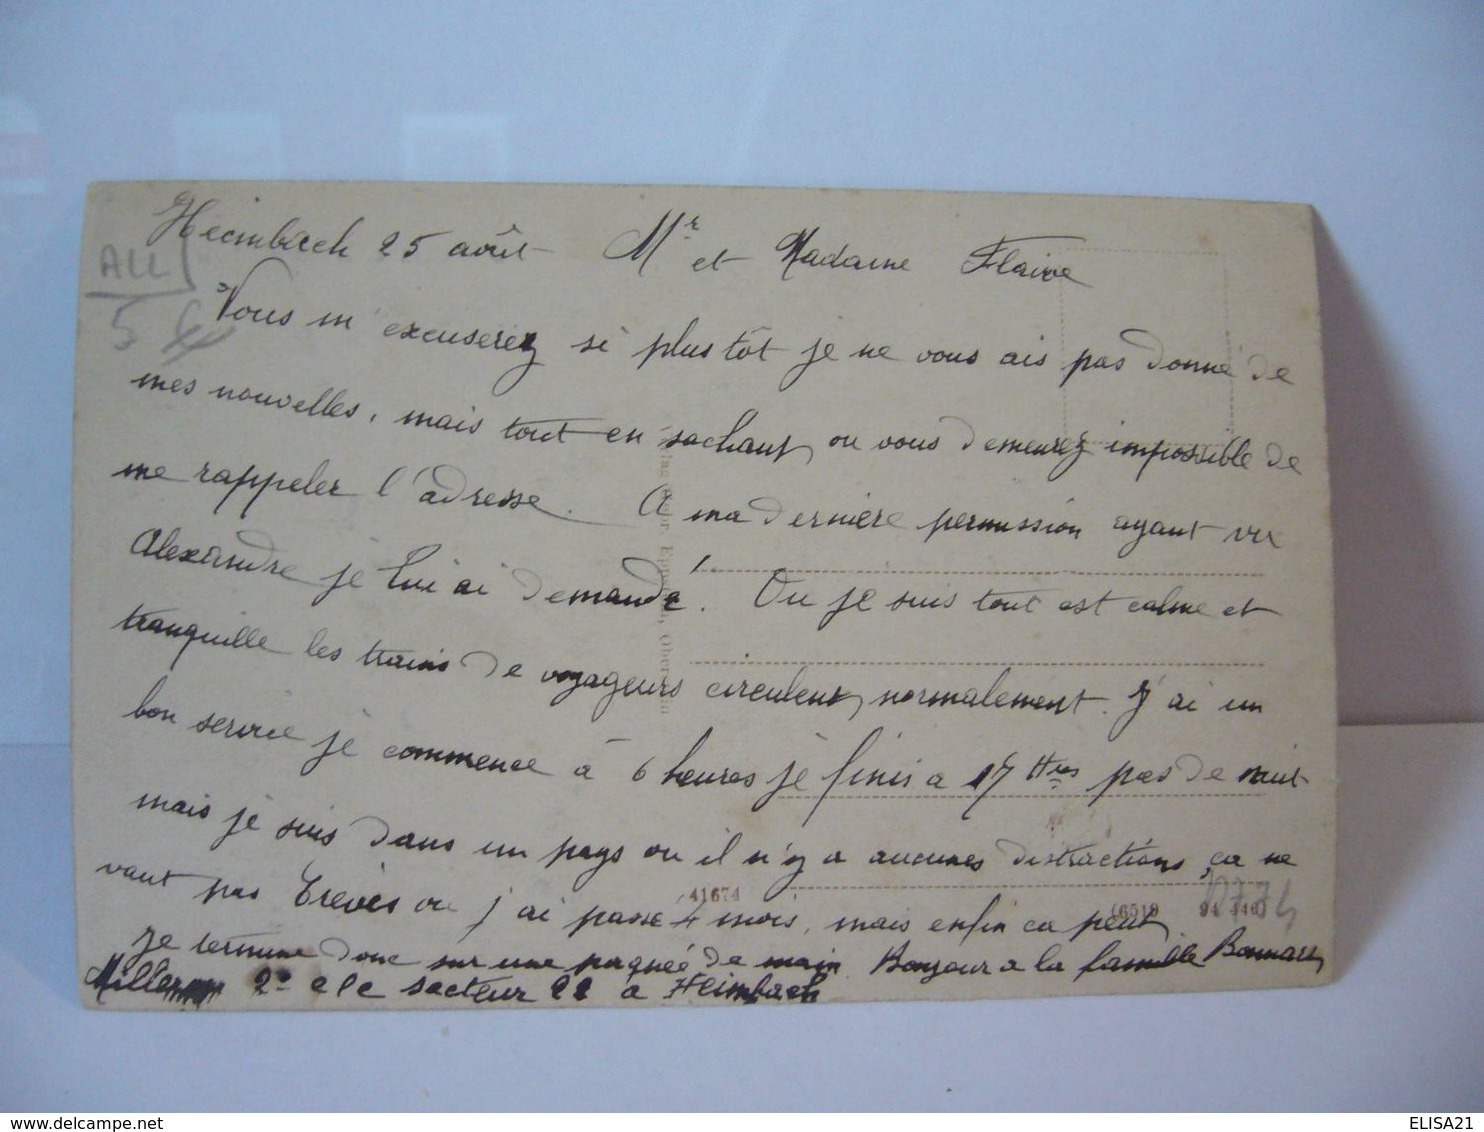 Heimbach 25 août Mr et Madame Flaive
ALL
5
Vous m'excuserez si plustôt je ne vous ais pas donné de
mes nouvelles, mais tout en sachant ou vous demeurez impossible de
me rappeler l'adresse. A ma dernière permission ayant vu
Alexandre je lui ai demandé. Ou je suis tout est calme et
tranquille les trains de voyageurs circulent normalement. J'ai un
bon service je commence à 6 heures je finis a 17 Hres pas de nuit
mais je suis dans un pays ou il n'y a aucunes distractions, ça ne
vaut pas Trèves ou j'ai passé 4 mois, mais enfin ca peut,
41674
(6519 94 440)
je termine donc sur une pognée de main Bonjour a la famille
2e ele secteur 22 a Heimbach
ELISA21